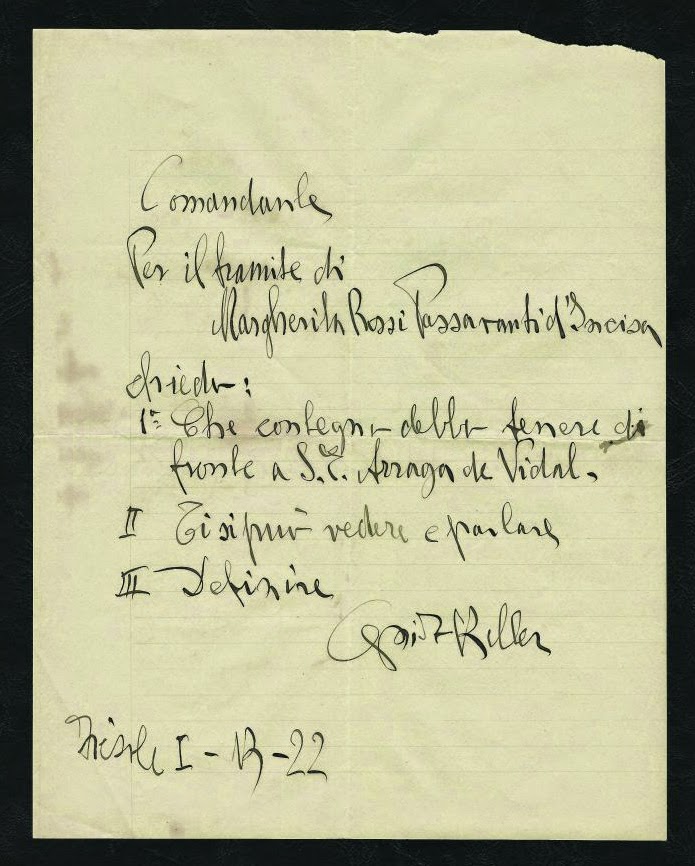 Comandante
Per il tramite di
Margherita Rossi Passavanti d'Incisa
chiedo:
1º Che contegno debbo tenere di
fronte a S.E. Arraga de Vidal.
II Ti si può vedere e parlare
III Definire
Guido Keller
I - -22